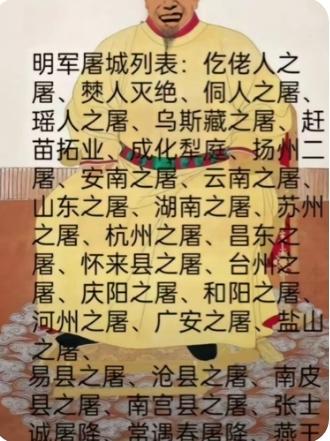 明军屠城列表：仡佬人之
屠、僰人灭绝、侗人之屠、
瑶人之屠、乌斯藏之屠、赶
苗拓业、成化犁庭、扬州二
屠、安南之屠、云南之屠、
山东之屠、湖南之屠、苏州
之屠、杭州之屠、昌东之
屠、怀来县之屠、台州之
屠、庆阳之屠、和阳之屠、
河州之屠、广安之屠、盐山
之屠、
易县之屠、沧县之屠、南皮
县之屠、南宫县之屠、张士
诚屠降、常遇春屠降、燕王